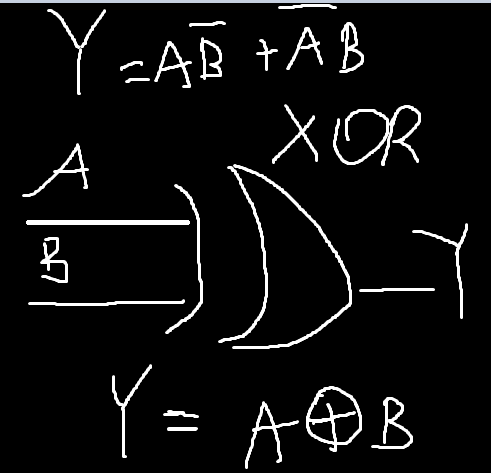 Y = AB̅ + A̅B
XOR
A
B
Y
Y = A⊕B